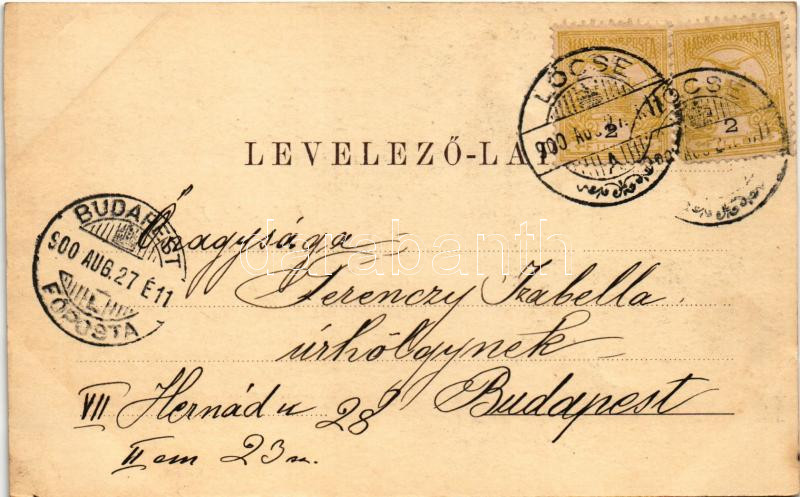 MAGYAR KIR. POSTA MAGYAR KIR. POSTA
2 2
LŐCSE
900 AUG 27
A
LŐCSE
LEVELEZŐ-LAP
BUDAPEST
900 AUG. 27 É 11
FŐPOSTA
Őnagysága
darabanth
Ferenczy Izabella
úrhölgynek
VII Hernád u 28 Budapest
II em 23 sz.